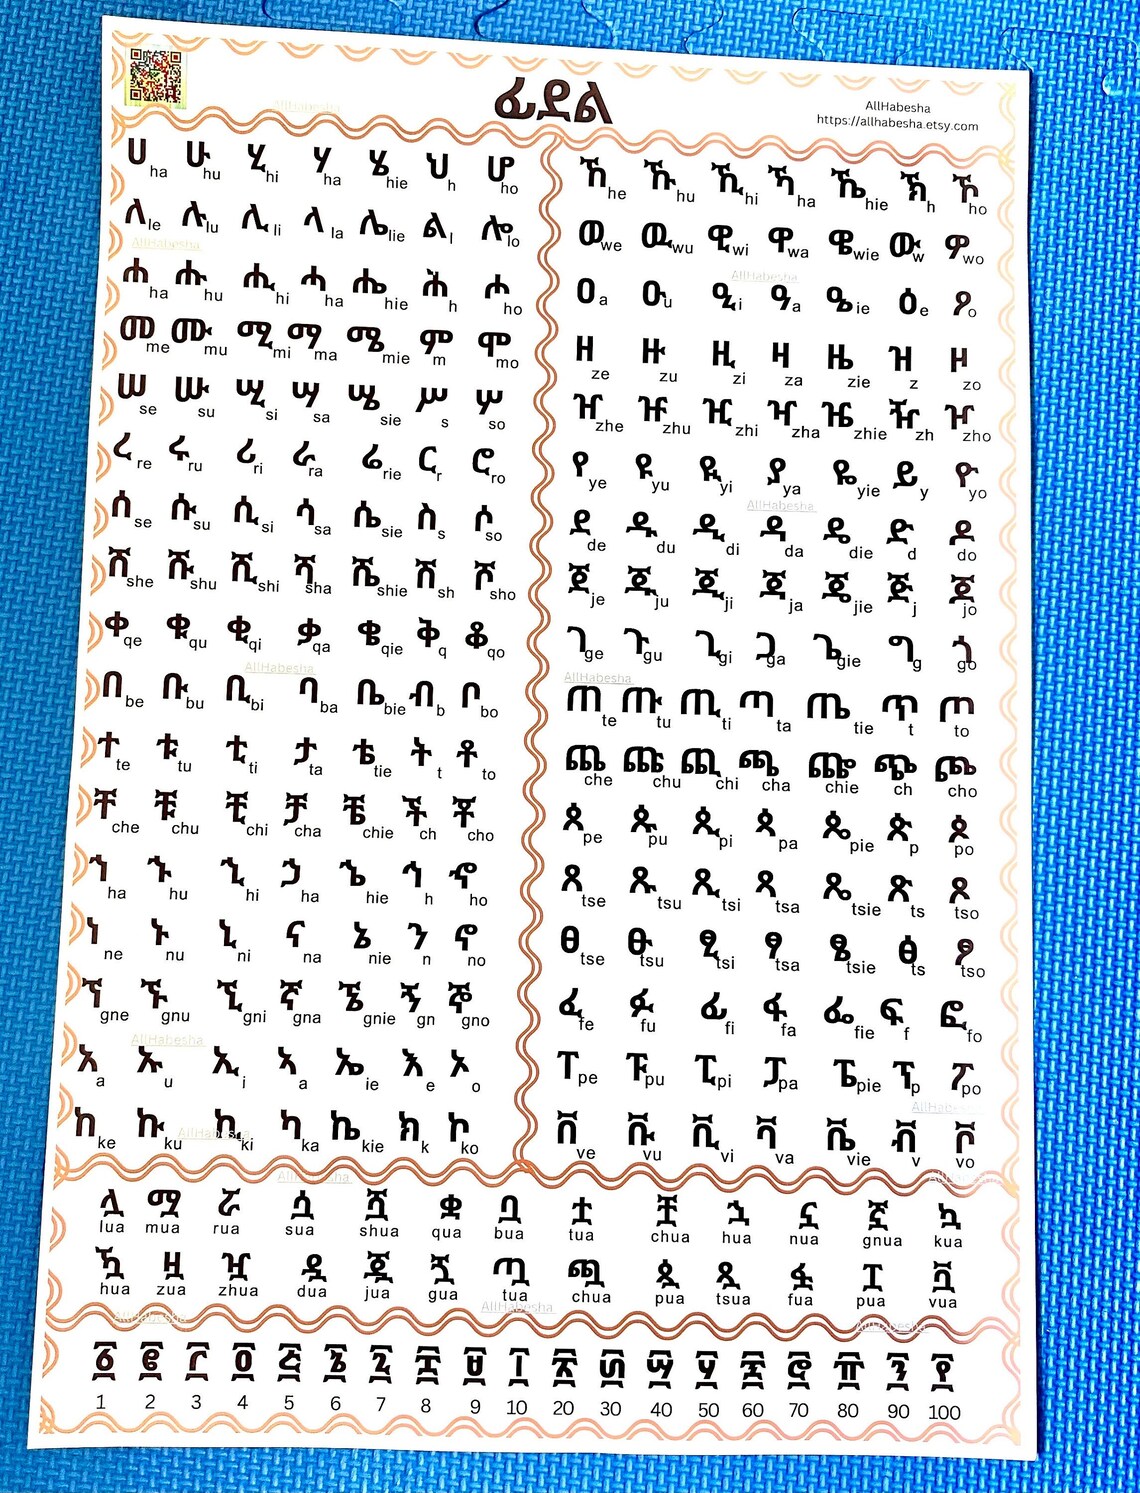 ፊደል
AllHabesha
https://allhabesha.etsy.com
ሀ ha ሁ hu ሂ hi ሃ ha ሄ hie ህ h ሆ ho
ለ le ሉ lu ሊ li ላ la ሌ lie ል l ሎ lo
AllHabesha
ሐ ha ሑ hu ሒ hi ሓ ha ሔ hie ሕ h ሖ ho
መ me ሙ mu ሚ mi ማ ma ሜ mie ም m ሞ mo
ሠ se ሡ su ሢ si ሣ sa ሤ sie ሥ s ሦ so
ረ re ሩ ru ሪ ri ራ ra ሬ rie ር r ሮ ro
ሰ se ሱ su ሲ si ሳ sa ሴ sie ስ s ሶ so
ሸ she ሹ shu ሺ shi ሻ sha ሼ shie ሽ sh ሾ sho
ቀ qe ቁ qu ቂ qi ቃ qa ቄ qie ቅ q ቆ qo
AllHabesha
በ be ቡ bu ቢ bi ባ ba ቤ bie ብ b ቦ bo
ተ te ቱ tu ቲ ti ታ ta ቴ tie ት t ቶ to
ቸ che ቹ chu ቺ chi ቻ cha ቼ chie ች ch ቾ cho
ኀ ha ኁ hu ኂ hi ኃ ha ኄ hie ኅ h ኆ ho
ነ ne ኑ nu ኒ ni ና na ኔ nie ን n ኖ no
ኘ gne ኙ gnu ኚ gni ኛ gna ኜ gnie ኝ gn ኞ gno
AllHabesha
አ a ኡ u ኢ i ኣ a ኤ ie እ e ኦ o
ከ ke ኩ ku ኪ ki ካ ka ኬ kie ክ k ኮ ko
AllHabesha
ኸ he ኹ hu ኺ hi ኻ ha ኼ hie ኽ h ኾ ho
ወ we ዉ wu ዊ wi ዋ wa ዌ wie ው w ዎ wo
AllHabesha
ዐ a ዑ u ዒ i ዓ a ዔ ie ዕ e ዖ o
ዘ ze ዙ zu ዚ zi ዛ za ዜ zie ዝ z ዞ zo
ዠ zhe ዡ zhu ዢ zhi ዣ zha ዤ zhie ዥ zh ዦ zho
የ ye ዩ yu ዪ yi ያ ya ዬ yie ይ y ዮ yo
AllHabesha
ደ de ዱ du ዲ di ዳ da ዴ die ድ d ዶ do
ጀ je ጁ ju ጂ ji ጃ ja ጄ jie ጅ j ጆ jo
ገ ge ጉ gu ጊ gi ጋ ga ጌ gie ግ g ጎ go
AllHabesha
ጠ te ጡ tu ጢ ti ጣ ta ጤ tie ጥ t ጦ to
ጨ che ጩ chu ጪ chi ጫ cha ጬ chie ጭ ch ጮ cho
ጰ pe ጱ pu ጲ pi ጳ pa ጴ pie ጵ p ጶ po
ጸ tse ጹ tsu ጺ tsi ጻ tsa ጼ tsie ጽ ts ጾ tso
ፀ tse ፁ tsu ፂ tsi ፃ tsa ፄ tsie ፅ ts ፆ tso
ፈ fe ፉ fu ፊ fi ፋ fa ፌ fie ፍ f ፎ fo
ፐ pe ፑ pu ፒ pi ፓ pa ፔ pie ፕ p ፖ po
AllHabesha
ቨ ve ቩ vu ቪ vi ቫ va ቬ vie ቭ v ቮ vo
AllHabesha
AllHabesha
ሏ ሟ ሯ ሷ ሿ ቋ ቧ ቷ ቿ ኋ ኗ ኟ ኳ
lua mua rua sua shua qua bua tua chua hua nua gnua kua
ዃ ዟ ዧ ዷ ጇ ጓ ጧ ጯ ጷ ጿ ፏ ፗ ቯ
hua zua zhua dua jua gua tua chua pua tsua fua pua vua
AllHabesha
AllHabesha
AllHabesha
፩ ፪ ፫ ፬ ፭ ፮ ፯ ፰ ፱ ፲ ፳ ፴ ፵ ፶ ፷ ፸ ፹ ፺ ፻
1 2 3 4 5 6 7 8 9 10 20 30 40 50 60 70 80 90 100